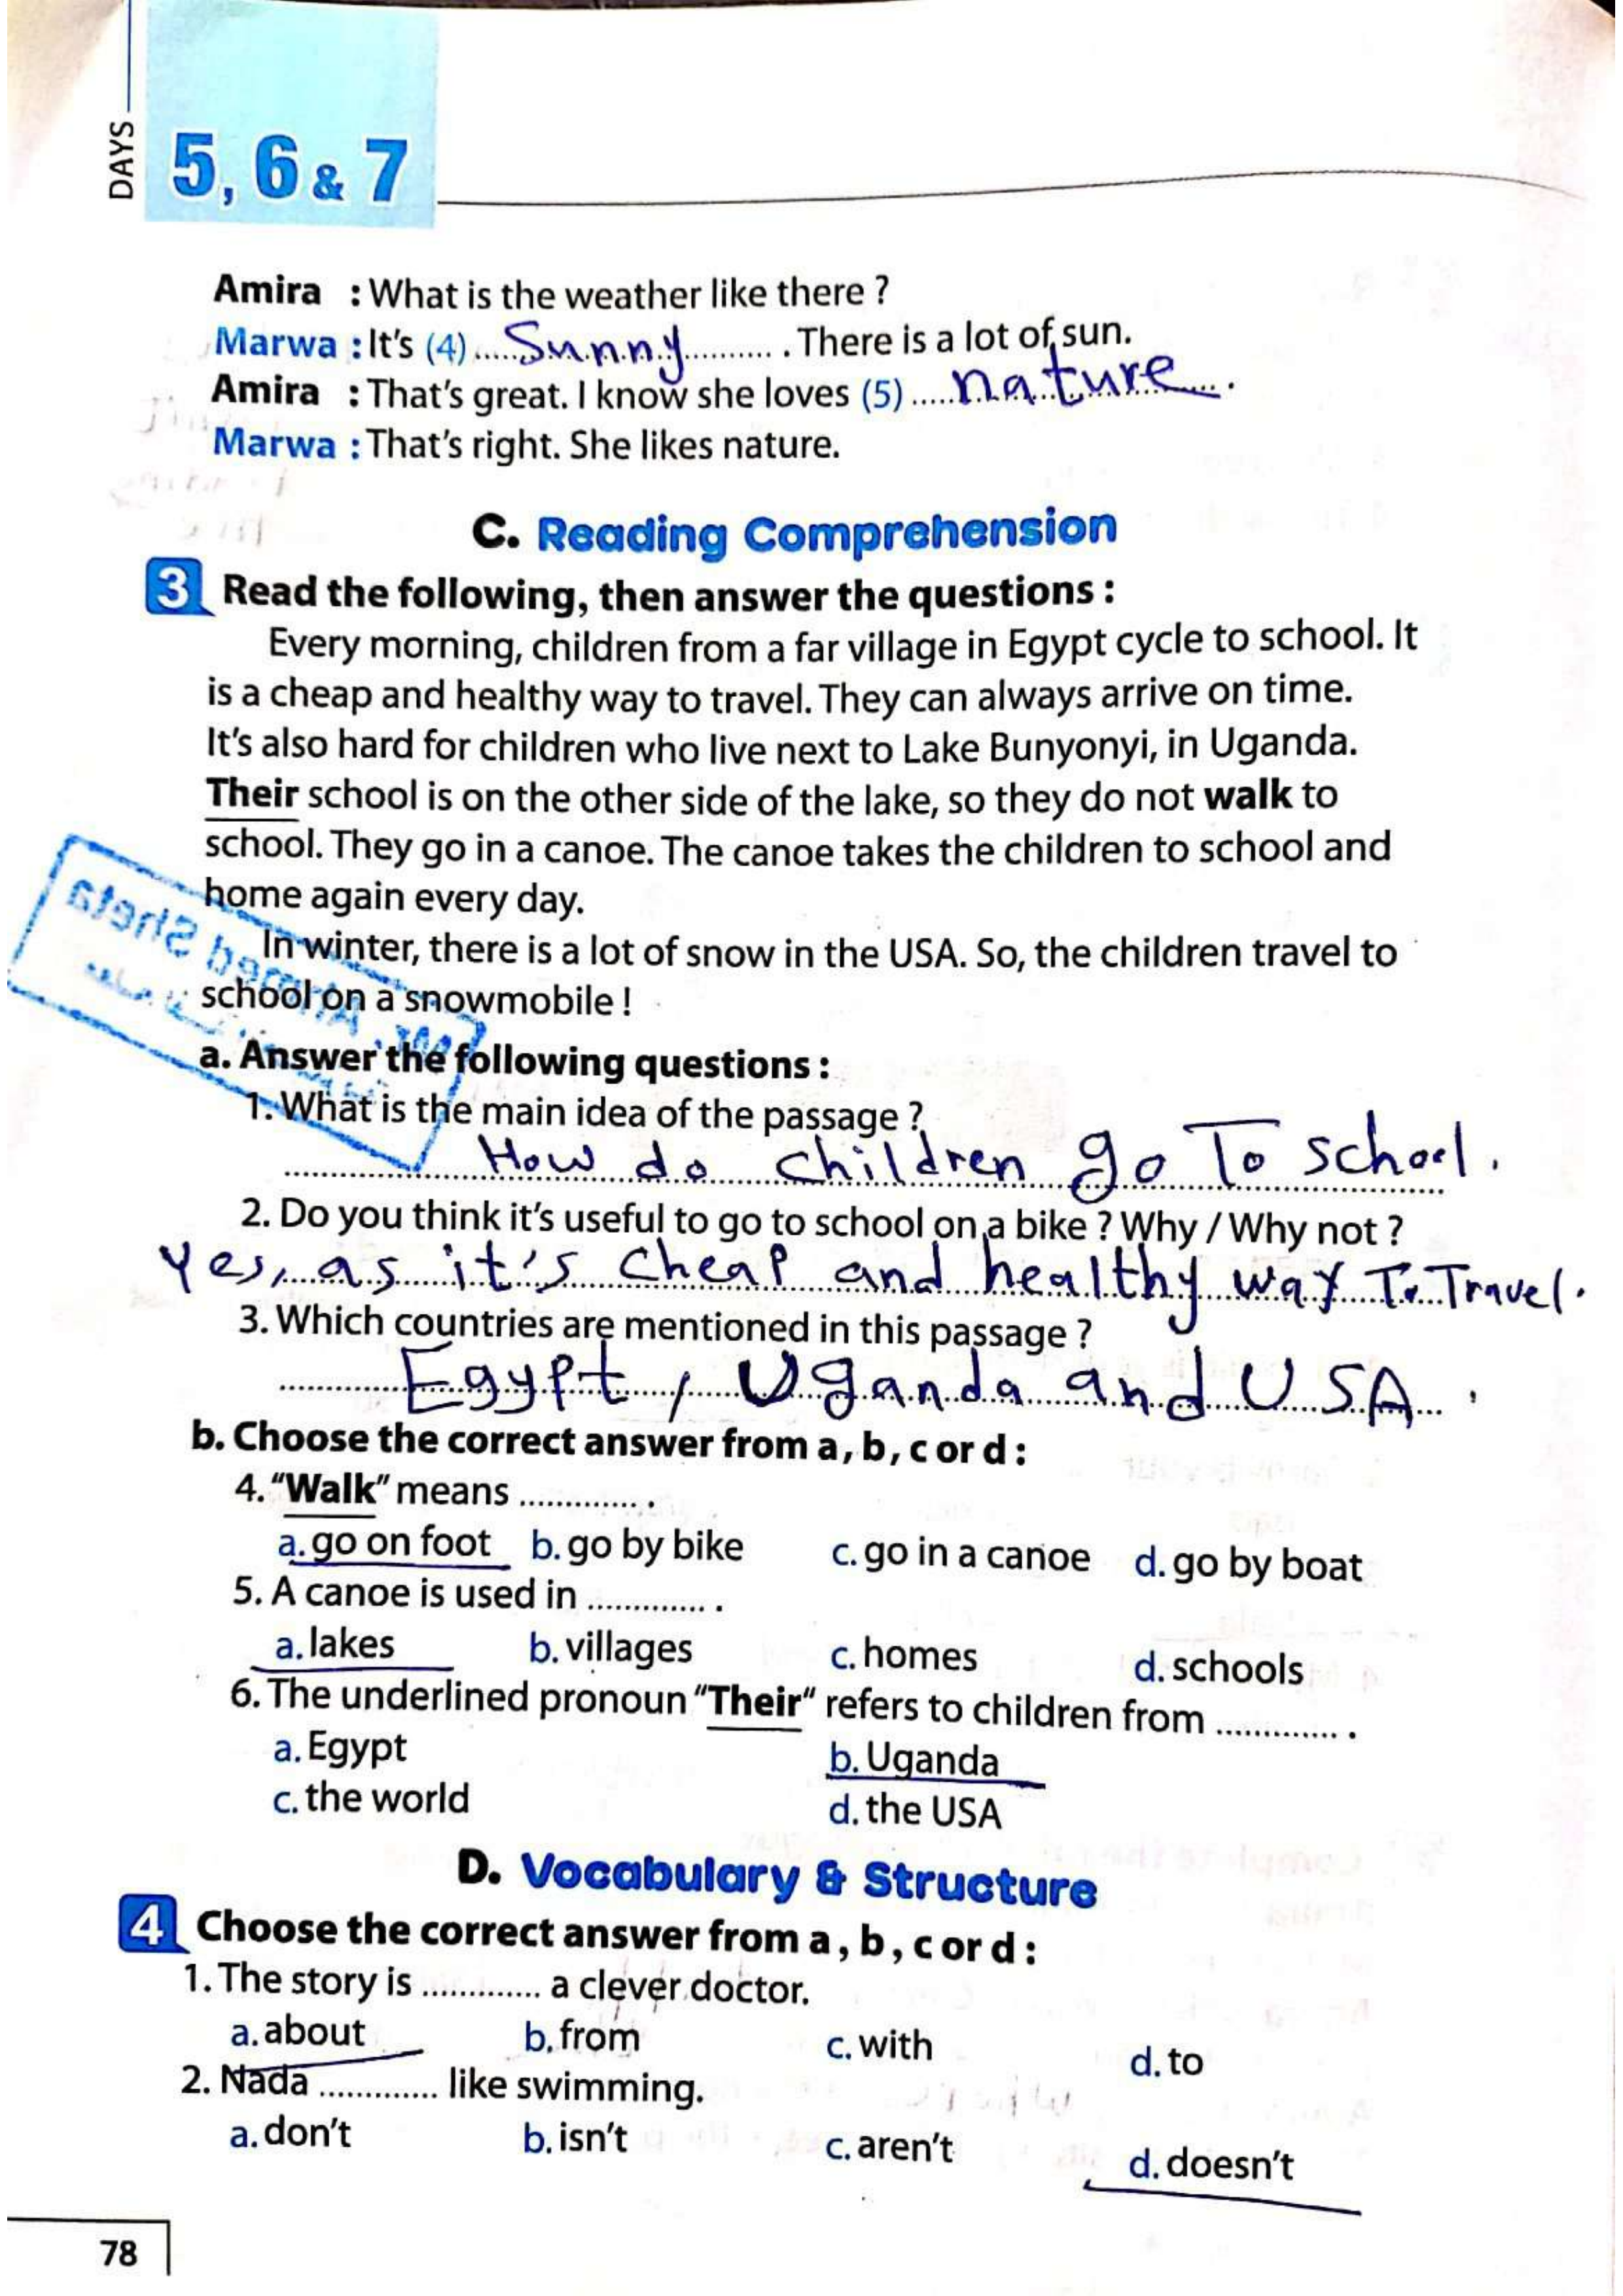 DAYS
5, 6 & 7
Amira : What is the weather like there ?
Marwa : It's (4) .....Sunny.......... . There is a lot of sun.
Amira : That's great. I know she loves (5) .....nature..... .
Marwa : That's right. She likes nature.
C. Reading Comprehension
3 Read the following, then answer the questions :
Every morning, children from a far village in Egypt cycle to school. It
is a cheap and healthy way to travel. They can always arrive on time.
It's also hard for children who live next to Lake Bunyonyi, in Uganda.
Their school is on the other side of the lake, so they do not walk to
school. They go in a canoe. The canoe takes the children to school and
home again every day.
In winter, there is a lot of snow in the USA. So, the children travel to
school on a snowmobile !
Mr. Ahmed Sheta
a. Answer the following questions :
1. What is the main idea of the passage ?
How do children go To school.
2. Do you think it's useful to go to school on a bike ? Why / Why not ?
Yes, as it's cheap and healthy way To Travel.
3. Which countries are mentioned in this passage ?
Egypt, Uganda and USA.
b. Choose the correct answer from a, b, c or d :
4. "Walk" means ............. .
a. go on foot b. go by bike c. go in a canoe d. go by boat
5. A canoe is used in ............. .
a. lakes b. villages c. homes d. schools
6. The underlined pronoun "Their" refers to children from ............. .
a. Egypt b. Uganda
c. the world d. the USA
D. Vocabulary & Structure
4 Choose the correct answer from a, b, c or d :
1. The story is ............. a clever doctor.
a. about b. from c. with d. to
2. Nada ............. like swimming.
a. don't b. isn't c. aren't d. doesn't
78